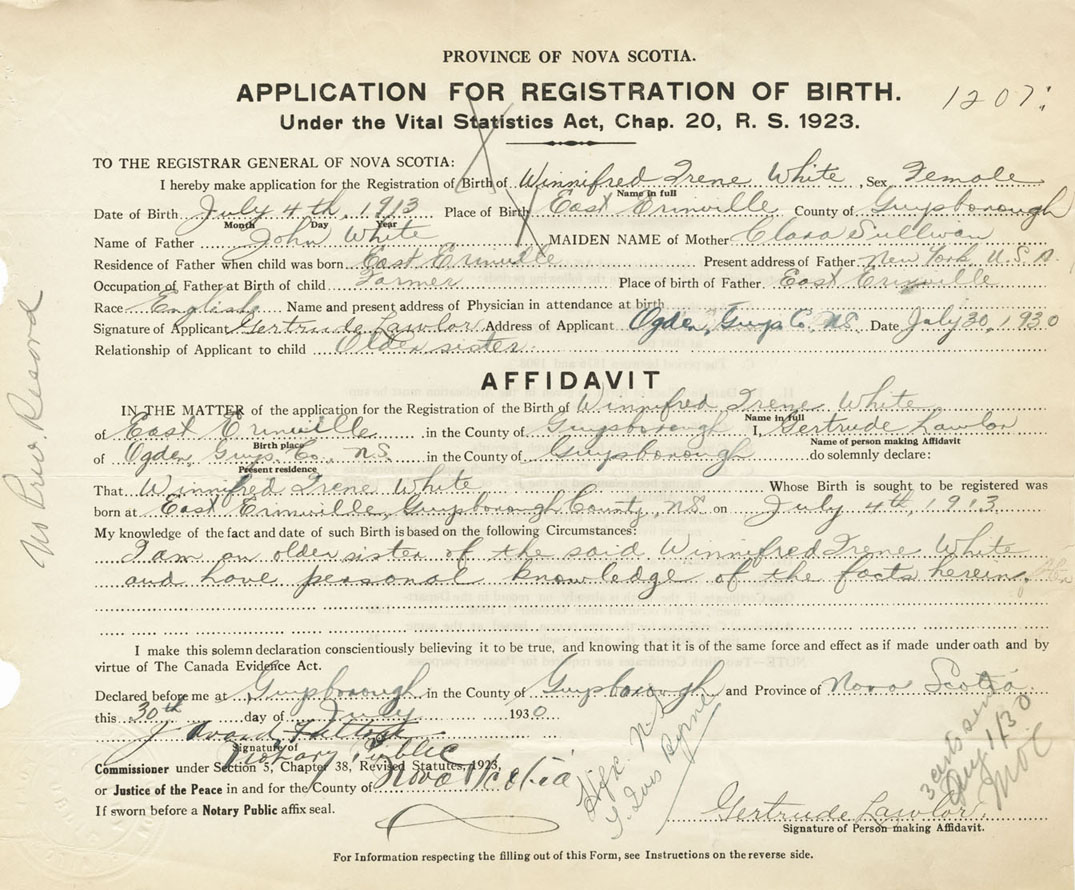 PROVINCE OF NOVA SCOTIA.
APPLICATION FOR REGISTRATION OF BIRTH.
1207
Under the Vital Statistics Act, Chap. 20, R. S. 1923.
TO THE REGISTRAR GENERAL OF NOVA SCOTIA:
I hereby make application for the Registration of Birth of Winnifred Irene White, Sex Female
Name in full
Date of Birth July 4th, 1913 Place of Birth East Erinville County of Guysborough
Month Day Year
Name of Father John White MAIDEN NAME of Mother Clara Sullivan
Residence of Father when child was born East Erinville Present address of Father New York, U.S.A.
Occupation of Father at Birth of child Farmer Place of birth of Father East Erinville
Race English Name and present address of Physician in attendance at birth
Signature of Applicant Gertrude Lawlor Address of Applicant Ogden, Guys. Co. N.S. Date July 30, 1930
Relationship of Applicant to child Older sister.
AFFIDAVIT
IN THE MATTER of the application for the Registration of the Birth of Winnifred Irene White
Name in full
of East Erinville in the County of Guysborough I, Gertrude Lawlor
Birth place Name of person making Affidavit
of Ogden, Guys. Co., N.S. in the County of Guysborough do solemnly declare:
Present residence
That Winnifred Irene White Whose Birth is sought to be registered was
born at East Erinville, Guysborough County, N.S. on July 4th, 1913
My knowledge of the fact and date of such Birth is based on the following Circumstances:
I am an older sister of the said Winnifred Irene White
and have personal knowledge of the facts herein.
I make this solemn declaration conscientiously believing it to be true, and knowing that it is of the same force and effect as if made under oath and by
virtue of The Canada Evidence Act.
Declared before me at Guysborough in the County of Guysborough and Province of Nova Scotia
this 30th day of July 1930
Signature of
Notary Public
Commissioner under Section 5, Chapter 38, Revised Statutes, 1923,
or Justice of the Peace in and for the County of Nova Scotia
If sworn before a Notary Public affix seal.
Gertrude Lawlor
Signature of Person making Affidavit.
For Information respecting the filling out of this Form, see Instructions on the reverse side.
No Prev. Record
Hfx. N.S.
Byrne
3 certs sent
Aug 1/30